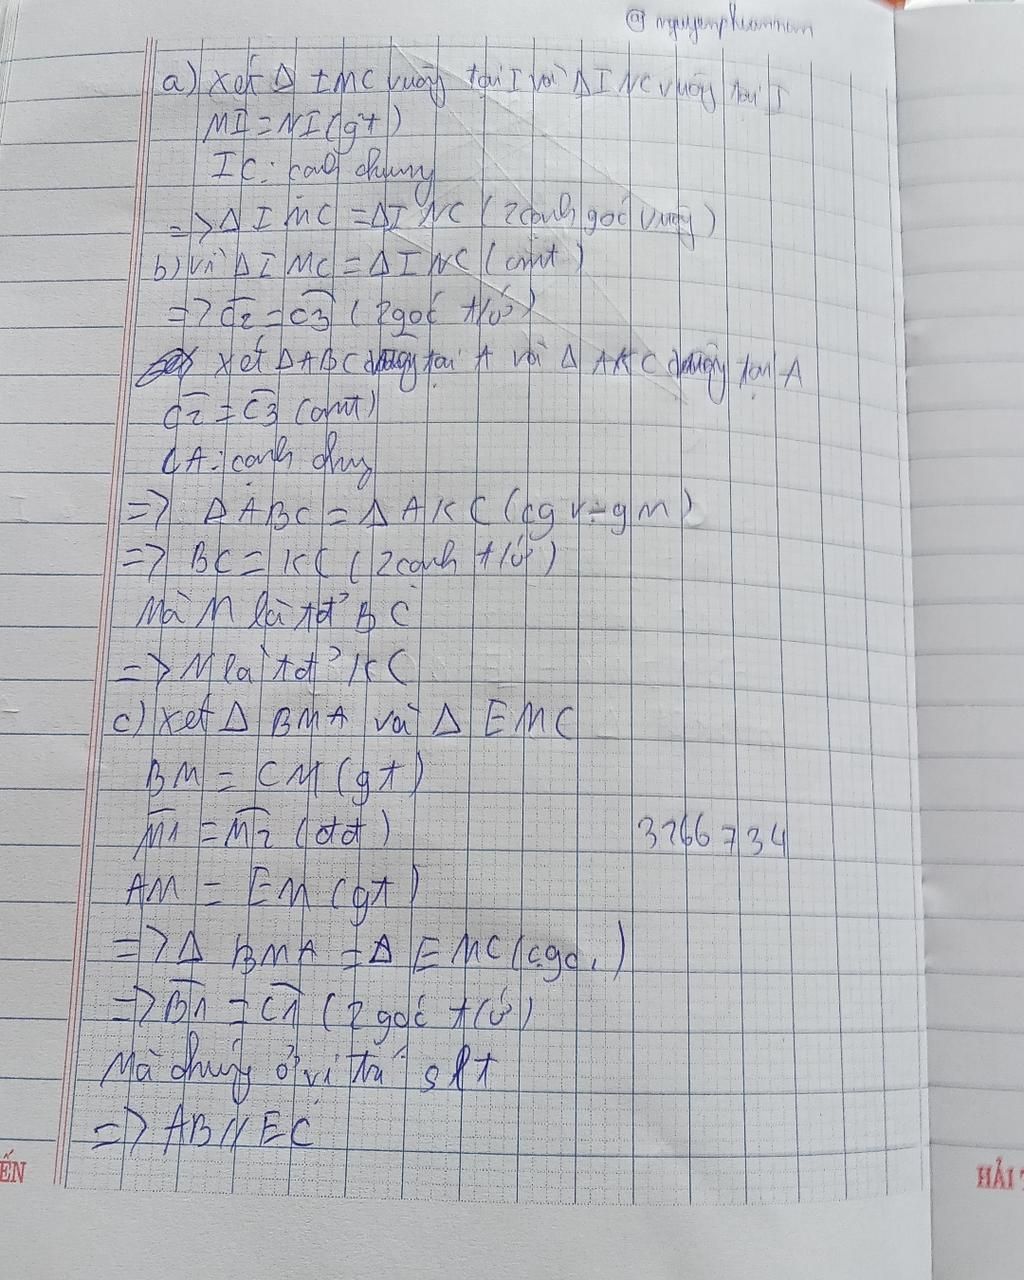 @nguyenphuonnam
a) Xét Δ IMC vuông tại I và Δ INC vuông tại I
MI = NI (gt)
IC: cạnh chung
=> Δ IMC = Δ INC (2 cạnh góc vuông)
b) Vì Δ IMC = Δ INC (cmt)
=> C2 = C3 (2 góc t/ứ)
Xét Δ ABC vuông tại A và Δ AKC vuông tại A
C2 = C3 (cmt)
CA: cạnh chung
=> Δ ABC = Δ AKC (cgv - gn)
=> BC = KC (2 cạnh t/ứ)
Mà M là tđ BC
=> N là tđ KC
c) Xét Δ BMA và Δ EMC
BM = CM (gt)
M1 = M2 (đđ)
AM = EM (gt)
=> Δ BMA = Δ EMC (cgc)
=> B1 = C1 (2 góc t/ứ)
Mà chúng ở vị trí slt
=> AB // EC
3266734
ẾN
HẢI